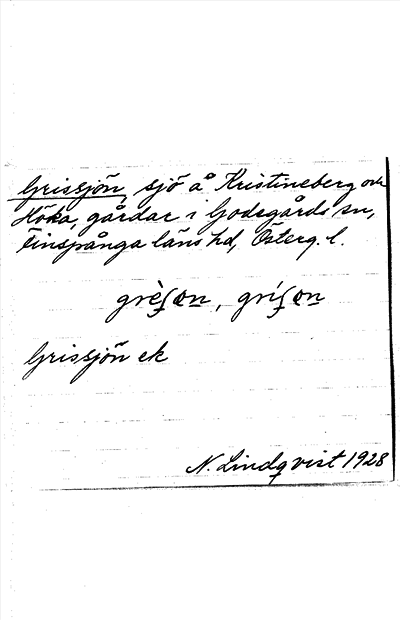 Grissjön, sjö å Kristineberg och
Höka, gårdar i Godegårds sn,
Finspånga läns hd, Österg. l.
grèʃɷn, gríʃɷn
Grissjön ek
N. Lindqvist 1928